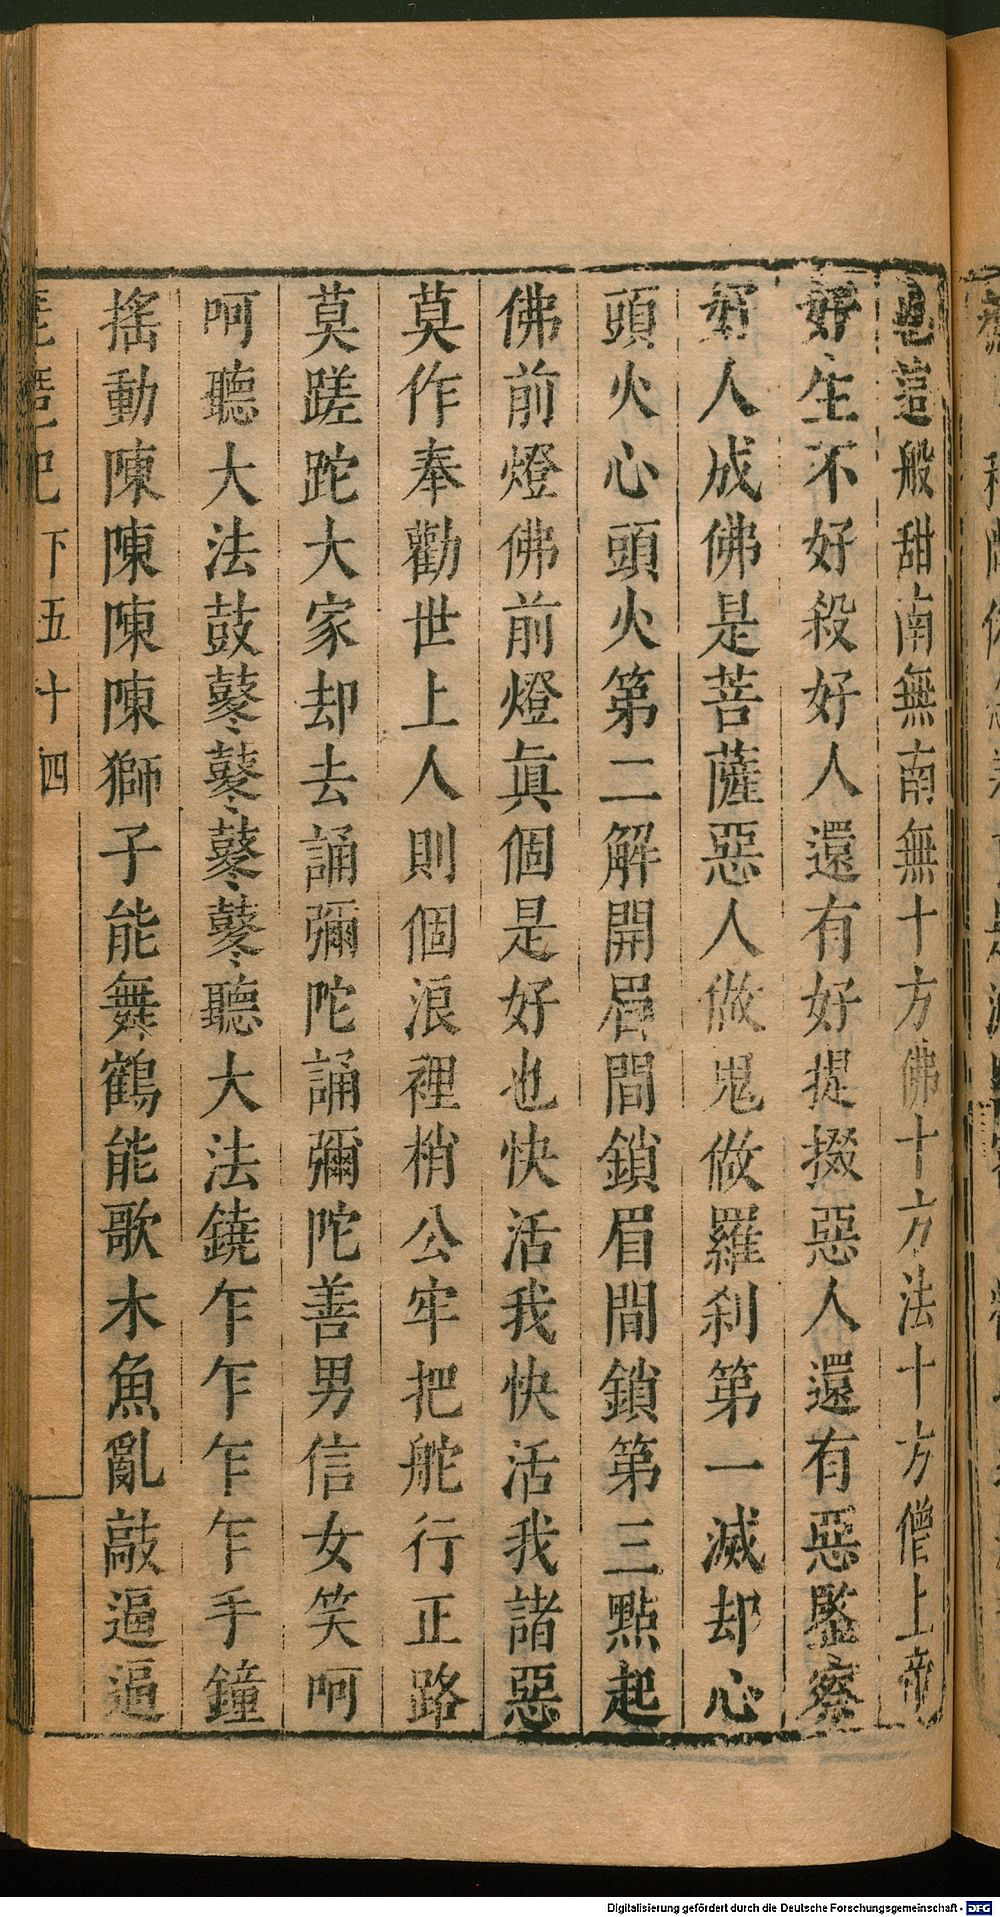 這般甜南無南無十方佛十方法十方僧上帝
好生不好殺好人還有好提掇惡人還有惡鑒察
好人成佛是菩薩惡人做鬼做羅刹第一滅却心
頭火心頭火第二解開眉間鎖眉間鎖第三點起
佛前燈佛前燈眞個是好也快活我快活我諸惡
莫作奉勸世上人則個浪裡梢公牢把舵行正路
莫蹉跎大家却去誦彌陀誦彌陀善男信女笑呵
呵聽大法鼓鼕鼕鼕鼕聽大法鐃乍乍乍乍手鐘
搖動陳陳陳陳獅子能舞鶴能歌木魚亂敲逼逼
琵琶記 下 五十四
Digitalisierung gefördert durch die Deutsche Forschungsgemeinschaft - DFG